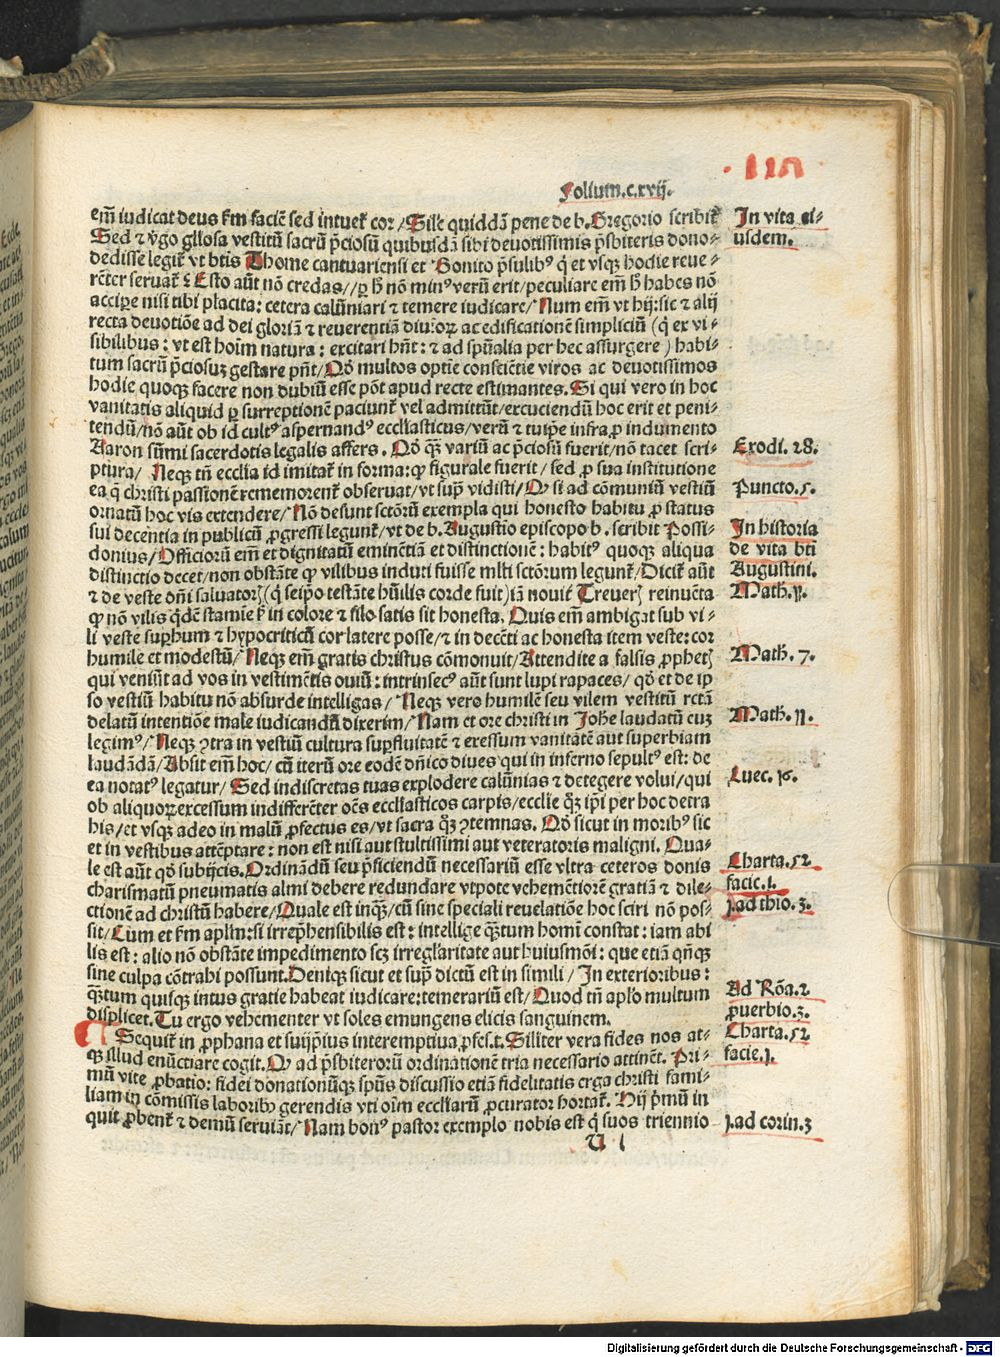 117
Folium.c.xvij.
em̄ iudicat deus km̄ faciē sed intuet̄ cor/Sil'r quiddā pene de b. Gregorio scribit̄
In vita ei-
Sed ⁊ v̄go gl'iosa vestitū sacrū p̄ciosū quibusdā sibi deuotissimis p̄sbiteris dono-
usdem.
dedisse legit̄ vt btīs Thome cantuariensi et Bonito p̄sulibꝰ q̄ et vsqꝫ hodie reue-
rēter seruat̄ Esto aūt nō credas//ꝑ h̄ nō minꝰ verū erit/peculiare em̄ h̄ habes nō
accipe nisi tibi placita: cetera calūniari ⁊ temere iudicare/Num em̄ vt hij: sic ⁊ alij
recta deuotiōe ad dei gloriā ⁊ reuerentiā diuoꝝ ac edificationē simpliciū (q̄ ex vi-
sibilibus: vt est hoīm natura: excitari hn̄t: ⁊ ad sp̄ualia per hec assurgere) habi-
tum sacrū p̄ciosuꝫ gestare pn̄t/Qd̓ multos optīe consciētie viros ac deuotissimos
hodie quoqꝫ facere non dubiū esse pōt apud recte estimantes. Si qui vero in hoc
vanitatis aliquid ꝑ surreptionē paciunt̄ vel admittūt/excuciendū hoc erit et peni-
tendū/nō aūt ob id cultꝰ aspernandꝰ eccl'iasticus/verū ⁊ turpe infra ꝓ indumento
Aaron sūmi sacerdotis legalis affers. Qd̓ qꝫ variū ac p̄ciosū fuerit/nō tacet scri-
Exodi. 28.
ptura/ Neqꝫ tn̄ eccl'ia id imitat̄ in forma: qꝙ figurale fuerit/ sed ꝓ sua institutione
ea q̄ christi passionē rememorent̄ obseruat/vt sup̄ vidisti/Qꝙ si ad cōmuniū vestiū
Puncto.5.
ornatū hoc vis extendere/ Nō desunt sctōrū exempla qui honesto habitu ꝓ status
sui decētia in publicū ꝓgressi legunt̄/vt de b. Augustio episcopo b. scribit Possi-
In historia
donius/Officiorū em̄ et dignitatū eminētiā et distinctionē: habitꝰ quoqꝫ aliqua
de vita bti
distinctio decet/non obstāte qꝙ vilibus induti fuisse ml̄ti sctōrum legunt̄/Dicit̄ aūt
Augustini.
⁊ de veste dn̄i saluatorꝭ (q̄ seip̄o testāte hūilis corde fuit) iā nouit̄ Treuerꝭ reinuēta
Math.11.
qꝙ nō vilis q̄dē stamīe sꝫ in colore ⁊ filo satis sit honesta. Quis em̄ ambigat sub vi-
li veste sup̄bum ⁊ hypocriticū cor latere posse/⁊ in decēti ac honesta item veste: cor
humile et modestū/Neqꝫ em̄ gratis christus cōmonuit/Attendite a falsis ꝓphetꝭ
Math. 7.
qui veniūt ad vos in vestimētis ouiū: intrinsecꝰ aūt sunt lupi rapaces/ qd̓ et de ip̄-
so vestiū habitu nō absurde intelligas/ Neqꝫ vero humilē seu vilem vestitū rctā
delatū intentiōe male iudicandū dixerim/Nam et ore christi in Johē laudatū euꝫ
Math.11.
legimꝰ/Neqꝫ ↄtra in vestiū cultura sup̄fluitatē ⁊ excessum vanitatē aut superbiam
laudādā/Absit em̄ hoc/ cū iterū ore eodē dn̄ico diues qui in inferno sepultꝰ est: de
ea notatꝰ legatur/ Sed indiscretas tuas explodere calūnias ⁊ detegere volui/qui
Luce. 16.
ob aliquoꝝ excessum indifferēter oēs eccl'iasticos carpis/eccl'ie qꝫ ip̄i per hoc detra
his/et vsqꝫ adeo in malū ꝓfectus es/vt sacra qꝫ ↄtemnas. Qd̓ sicut in moribꝰ sic
et in vestibus attēptare: non est nisi aut stultissimi aut veteratoris maligni. Qua-
le est aūt qd̓ subijcis. Ordinādū seu p̄ficiendū necessariū esse vltra ceteros donis
Charta.52.
charismatū pneumatis almi debere redundare vtpote vehemētiorē gratiā ⁊ dile-
facie.1.
ctionē ad christū habere/Quale est inqꝫ/cū sine speciali reuelatiōe hoc sciri nō pos-
1.ad thio.3.
sit/Cum et km̄ apl'm: si irrep̄hensibilis est: intellige qꝫtum homī constat: iam abi
lis est: alio nō obstāte impedimento scꝫ irregl'aritate aut huiusmōi: que etiā qn̄qꝫ
sine culpa cōtrahi possunt. Deniqꝫ sicut et sup̄ dictū est in simili/ In exterioribus:
qꝫtum quisqꝫ intus gratie habeat iudicare: temerariū est/Quod tn̄ apl'o multum
Ad Rōa.2
displicet. Tu ergo vehementer vt soles emungens elicis sanguinem.
ꝓuerbio.3.
Sequit̄ in ꝓphana et suijpius interemptiua ꝓfes.t. Sil'iter vera fides nos at-
Charta.52
qꝫ illud enūctiare cogit. Qꝙ ad p̄sbiterorū ordinationē tria necessario attinēt. Pri-
facie.1.
mū vite ꝓbatio: fidei donationūqꝫ sp̄us discussio etiā fidelitatis erga christi fami-
liam in cōmissis laboribꝰ gerendis vti oīm eccl'iarū ꝓcurator hortat̄. Hij p̄mū in
quit ꝓbent̄ ⁊ demū seruiāt/Nam bonꝰ pastor exemplo nobis est q̄ suos triennio
1.ad corin.3
U 1
Digitalisierung gefördert durch die Deutsche Forschungsgemeinschaft - DFG